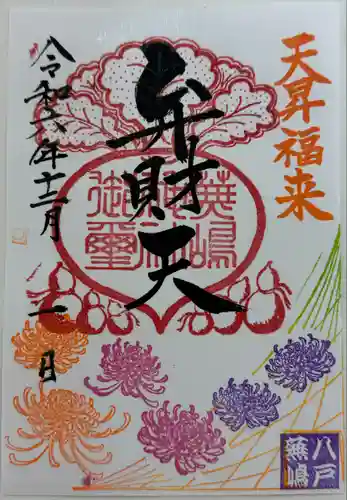 天昇福来
弁財天
令和六年十二月
一日
蕪嶋
神社
御璽
八戸
蕪嶋